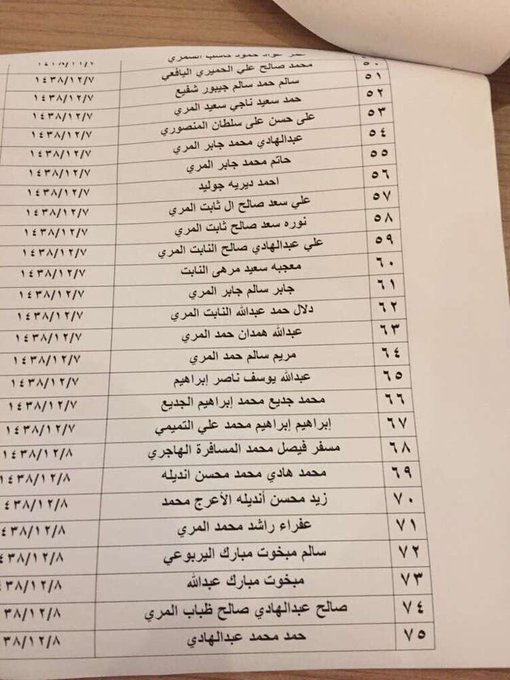 السمري
٥٠ محمد صالح علي الحميري اليافعي ١٤٣٨/١٢/٧
٥١ سالم حمد سالم جيبور شفيع ١٤٣٨/١٢/٧
٥٢ حمد سعيد ناجي سعيد المري ١٤٣٨/١٢/٧
٥٣ على حسن على سلطان المنصوري ١٤٣٨/١٢/٧
٥٤ عبدالهادي محمد جابر المري ١٤٣٨/١٢/٧
٥٥ حاتم محمد جابر المري ١٤٣٨/١٢/٧
٥٦ احمد ديريه جوليد ١٤٣٨/١٢/٧
٥٧ علي سعد صالح ال ثابت المري ١٤٣٨/١٢/٧
٥٨ نوره سعد صالح ثابت المري ١٤٣٨/١٢/٧
٥٩ علي عبدالهادي صالح النابت المري ١٤٣٨/١٢/٧
٦٠ معجبه سعيد مرهى النابت ١٤٣٨/١٢/٧
٦١ جابر سالم جابر المري ١٤٣٨/١٢/٧
٦٢ دلال حمد عبدالله النابت المري ١٤٣٨/١٢/٧
٦٣ عبدالله همدان حمد المري ١٤٣٨/١٢/٧
٦٤ مريم سالم حمد المري ١٤٣٨/١٢/٧
٦٥ عبدالله يوسف ناصر إبراهيم ١٤٣٨/١٢/٧
٦٦ محمد جديع محمد إبراهيم الجديع ٤٣٨/١٢/٧
٦٧ إبراهيم إبراهيم محمد علي التميمي ٤٣٨/١٢/٧
٦٨ مسفر فيصل محمد المسافرة الهاجري ٤٣٨/١٢/٨
٦٩ محمد هادي محمد محسن انديله ٤٣٨/١٢/٨
٧٠ زيد محسن أنديله الأعرج محمد ٤٣٨/١٢/٨
٧١ عفراء راشد محمد المري ٤٣٨/١٢/٨
٧٢ سالم مبخوت مبارك اليربوعي ٤٣٨/١٢/٨
٧٣ مبخوت مبارك عبدالله ٤٣٨/١٢/٨
٧٤ صالح عبدالهادي صالح ظباب المري ٣٨/١٢/٨
٧٥ حمد محمد عبدالهادي ٣٨/١٢/٨